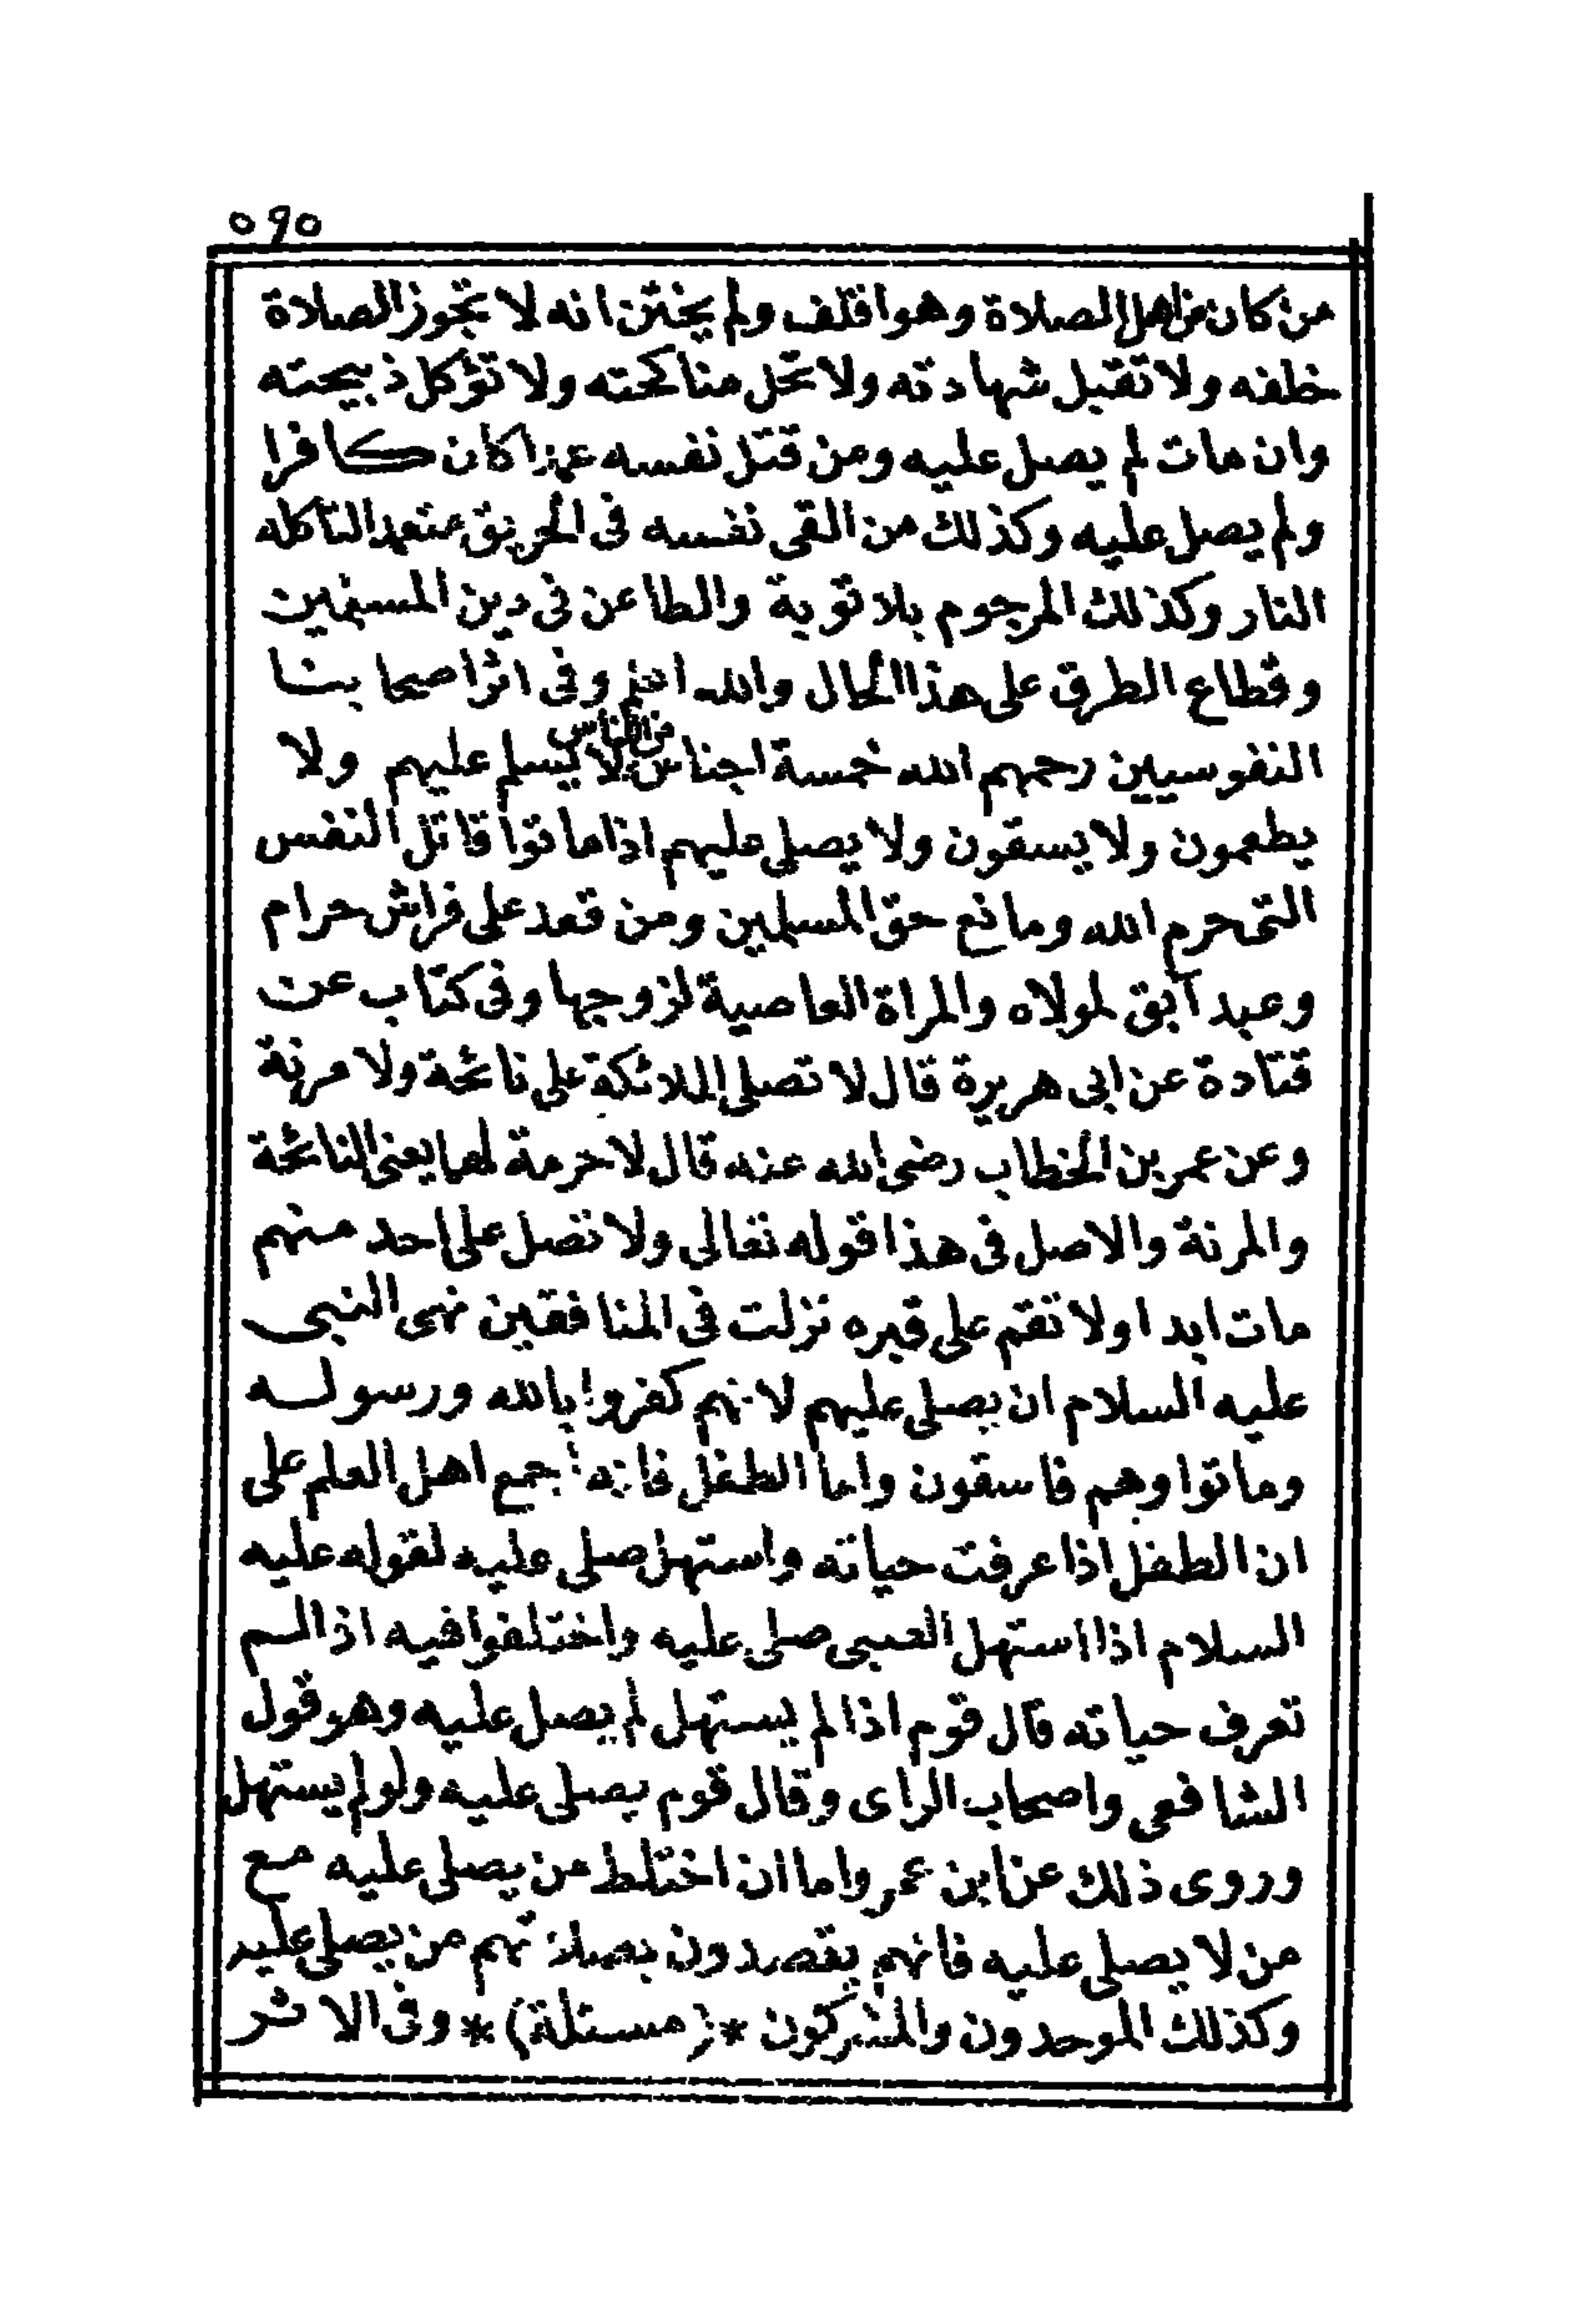 ٥٩٥
من كان من اهل الصلاة وهو اقلف ولم يختتن انه لا تجوز الصلاة
خلفه ولا تقبل شهادته ولا تحل مناكحته ولا تؤكل ذبيحته
وان مات لم يصل عليه ومن قتل نفسه عمدا كان كافرا
ولم يصل عليه وكذلك من القى نفسه فى الحريق متعمدا لتاكله
النار وكذلك المرجوم بلا توبة والطاعن فى دين المسلمين
وقطاع الطرق على هذا الحال والله اعلم وفى اثر اصحابنا
النفوسيين رحمهم الله خمسة اجناس من الناس لا يسلم عليهم ولا
يطعمون ولا يسقون ولا يصلى عليهم اذا ماتوا قاتل النفس
التى حرم الله ومانع حق المسلمين ومن قعد على فراش حرام
وعبد آبق لمولاه والمراة العاصية لزوجها وفى كتاب عن
قتادة عن ابى هريرة قال لا تصلى الملائكة على نائحة ولا مرنة
وعن عمر بن الخطاب رضى الله عنه قال لا حرمة لها يعنى النائحة
والمرنة والاصل فى هذا قوله تعالى ولا تصل على احد منهم
مات ابدا ولا تقم على قبره نزلت فى المنافقين نهى النبى
عليه السلام ان يصلى عليهم لانهم كفروا بالله ورسوله
وماتوا وهم فاسقون واما الطفل فانه اجمع اهل العلم على
ان الطفل اذا عرفت حياته واستهل صلى عليه لقوله عليه
السلام اذا استهل الصبى صلى عليه واختلفوا فيه اذا لم
تعرف حياته قال قوم اذا لم يستهل لم يصل عليه وهو قول
الشافعى واصحاب الراى وقال قوم يصلى عليه ولو لم يستهل
وروى ذلك عن ابن عمر واما ان اختلط من يصلى عليه مع
من لا يصلى عليه فانهم يقصدون بصلاتهم من يصلى عليه
وكذلك الموحدون والمشركون *(مسئلة)* وفى الاثر